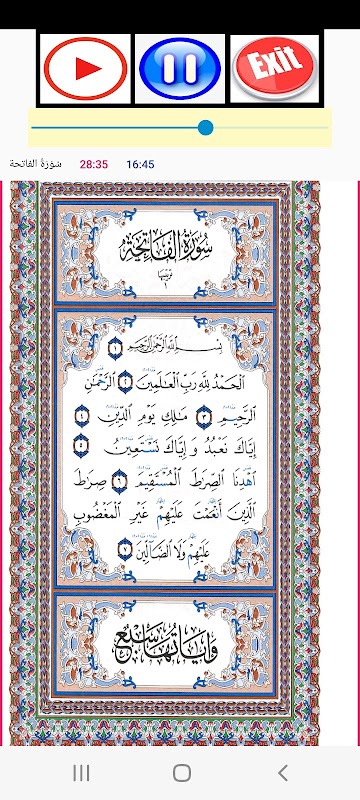 Exit
سورة الفاتحة 28:35 16:45
سُورَةُ الفَاتِحَةِ
بِسْمِ اللَّهِ الرَّحْمَٰنِ الرَّحِيمِ ١
الْحَمْدُ لِلَّهِ رَبِّ الْعَٰلَمِينَ ٢ الرَّحْمَٰنِ
الرَّحِيمِ ٣ مَلِكِ يَوْمِ الدِّينِ ٤
إِيَّاكَ نَعْبُدُ وَ إِيَّاكَ نَسْتَعِينُ ٥
اهْدِنَا الصِّرَٰطَ الْمُسْتَقِيمَ ٦ صِرَٰطَ
الَّذِينَ أَنْعَمْتَ عَلَيْهِمْ غَيْرِ الْمَغْضُوبِ
عَلَيْهِمْ وَلَا الضَّالِّينَ ٧
وَآيَاتُهَا سَبْعٌ